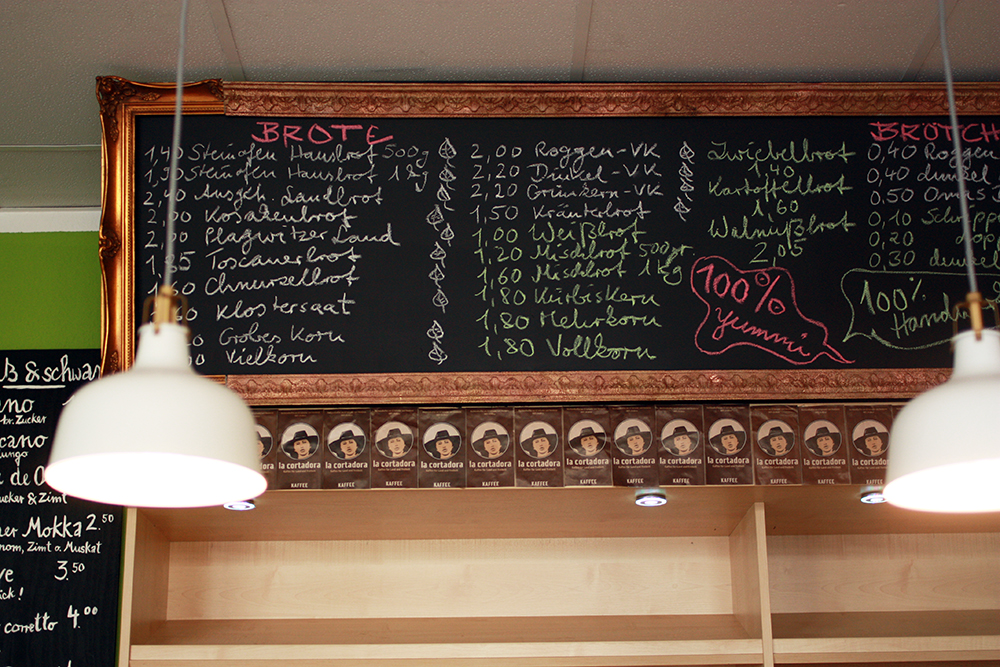 BROTE
1,40 Steinofen Hausbrot 500g
Steinofen Hausbrot 1kg
Ausgeh. Landbrot
Kosakenbrot
2,00 Plagwitzer Land
Toscanerbrot
Chnurzelbrot
Klostersaat
Grobes Korn
Vielkorn
2,00 Roggen-VK
2,20 Dinkel-VK
2,20 Grünkern-VK
1,50 Kräuterbrot
1,00 Weißbrot
1,20 Mischbrot 500gr
1,60 Mischbrot 1kg
1,80 Kürbiskern
1,80 Mehrkorn
1,80 Vollkorn
Zwiebelbrot
1,40
Kartoffelbrot
1,60
Walnußbrot
2,05
100%
yummi
BRÖTCH
0,40 Roggen
0,40 dunkel
0,50 Oma's
0,10 Schripp
0,20
0,30 dunkel
100%
la cortadora
KAFFEE
la cortadora
KAFFEE
la cortadora
KAFFEE
la cortadora
KAFFEE
la cortadora
KAFFEE
la cortadora
KAFFEE
la cortadora
KAFFEE
la cortadora
KAFFEE
la cortadora
KAFFEE
la cortadora
KAFFEE
la cortadora
KAFFEE
la cortadora
KAFFEE
la cortadora
KAFFEE
& schwar
br. Zucker
cano
ungo
ucker & Zimt
Mokka 2.50
Zimt o. Muskat
3.50
corretto 4.00